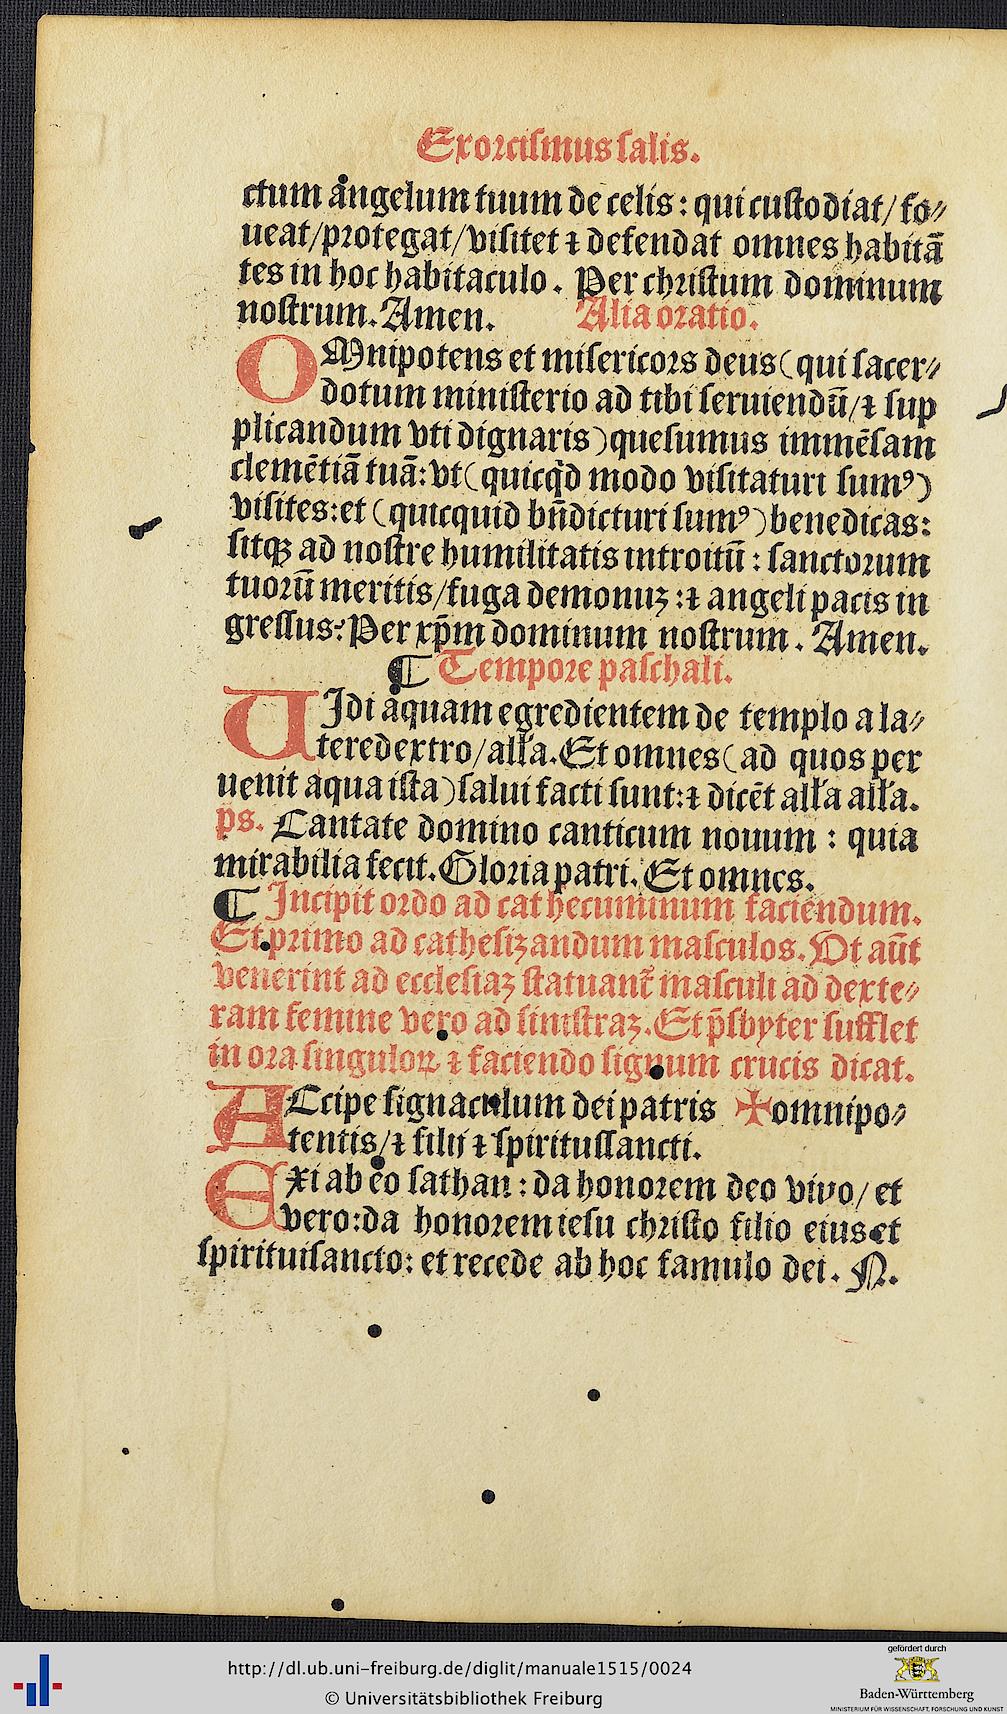 Exorcismus salis.
ctum angelum tuum de celis: qui custodiat/ fo⸗
ueat/protegat/visitet ⁊ defendat omnes habitā
tes in hoc habitaculo. Per christum dominum
nostrum. Amen. Alia oratio.
OMnipotens et misericors deus (qui sacer⸗
dotum ministerio ad tibi seruiendū/⁊ sup
plicandum vti dignaris) quesumus immēsam
clemētiā tuā: vt (quicq̄d modo visitaturi sumꝰ)
visites: et (quicquid bn̄dicturi sumꝰ) benedicas:
sitqꝫ ad nostre humilitatis introitū: sanctorum
tuorū meritis/fuga demonuꝫ: ⁊ angeli pacis in
gressus: Per xp̄m dominum nostrum. Amen.
¶ Tempore paschali.
UIdi aquam egredientem de templo a la⸗
tere dextro/ all'a. Et omnes (ad quos per
uenit aqua ista) salui facti sunt: ⁊ dicēt all'a all'a.
ps. Cantate domino canticum nouum: quia
mirabilia fecit. Gloria patri. Et omnes.
¶ Incipit ordo ad cathecuminum faciendum.
Et primo ad cathesizandum masculos. Vt aūt
venerint ad ecclesiaꝫ statuant᷑ masculi ad dexte⸗
ram femine vero ad sinistraꝫ. Et p̄sbyter sufflet
in ora singuloꝝ ⁊ faciendo signum crucis dicat.
ACcipe signaculum dei patris ✠ omnipo⸗
tentis/⁊ filij ⁊ spiritussancti.
EXi ab eo sathan: da honorem deo vivo/ et
vero: da honorem iesu christo filio eius et
spirituisancto: et recede ab hoc famulo dei. N.
http://dl.ub.uni-freiburg.de/diglit/manuale1515/0024
© Universitätsbibliothek Freiburg
gefördert durch
Baden-Württemberg
MINISTERIUM FÜR WISSENSCHAFT, FORSCHUNG UND KUNST